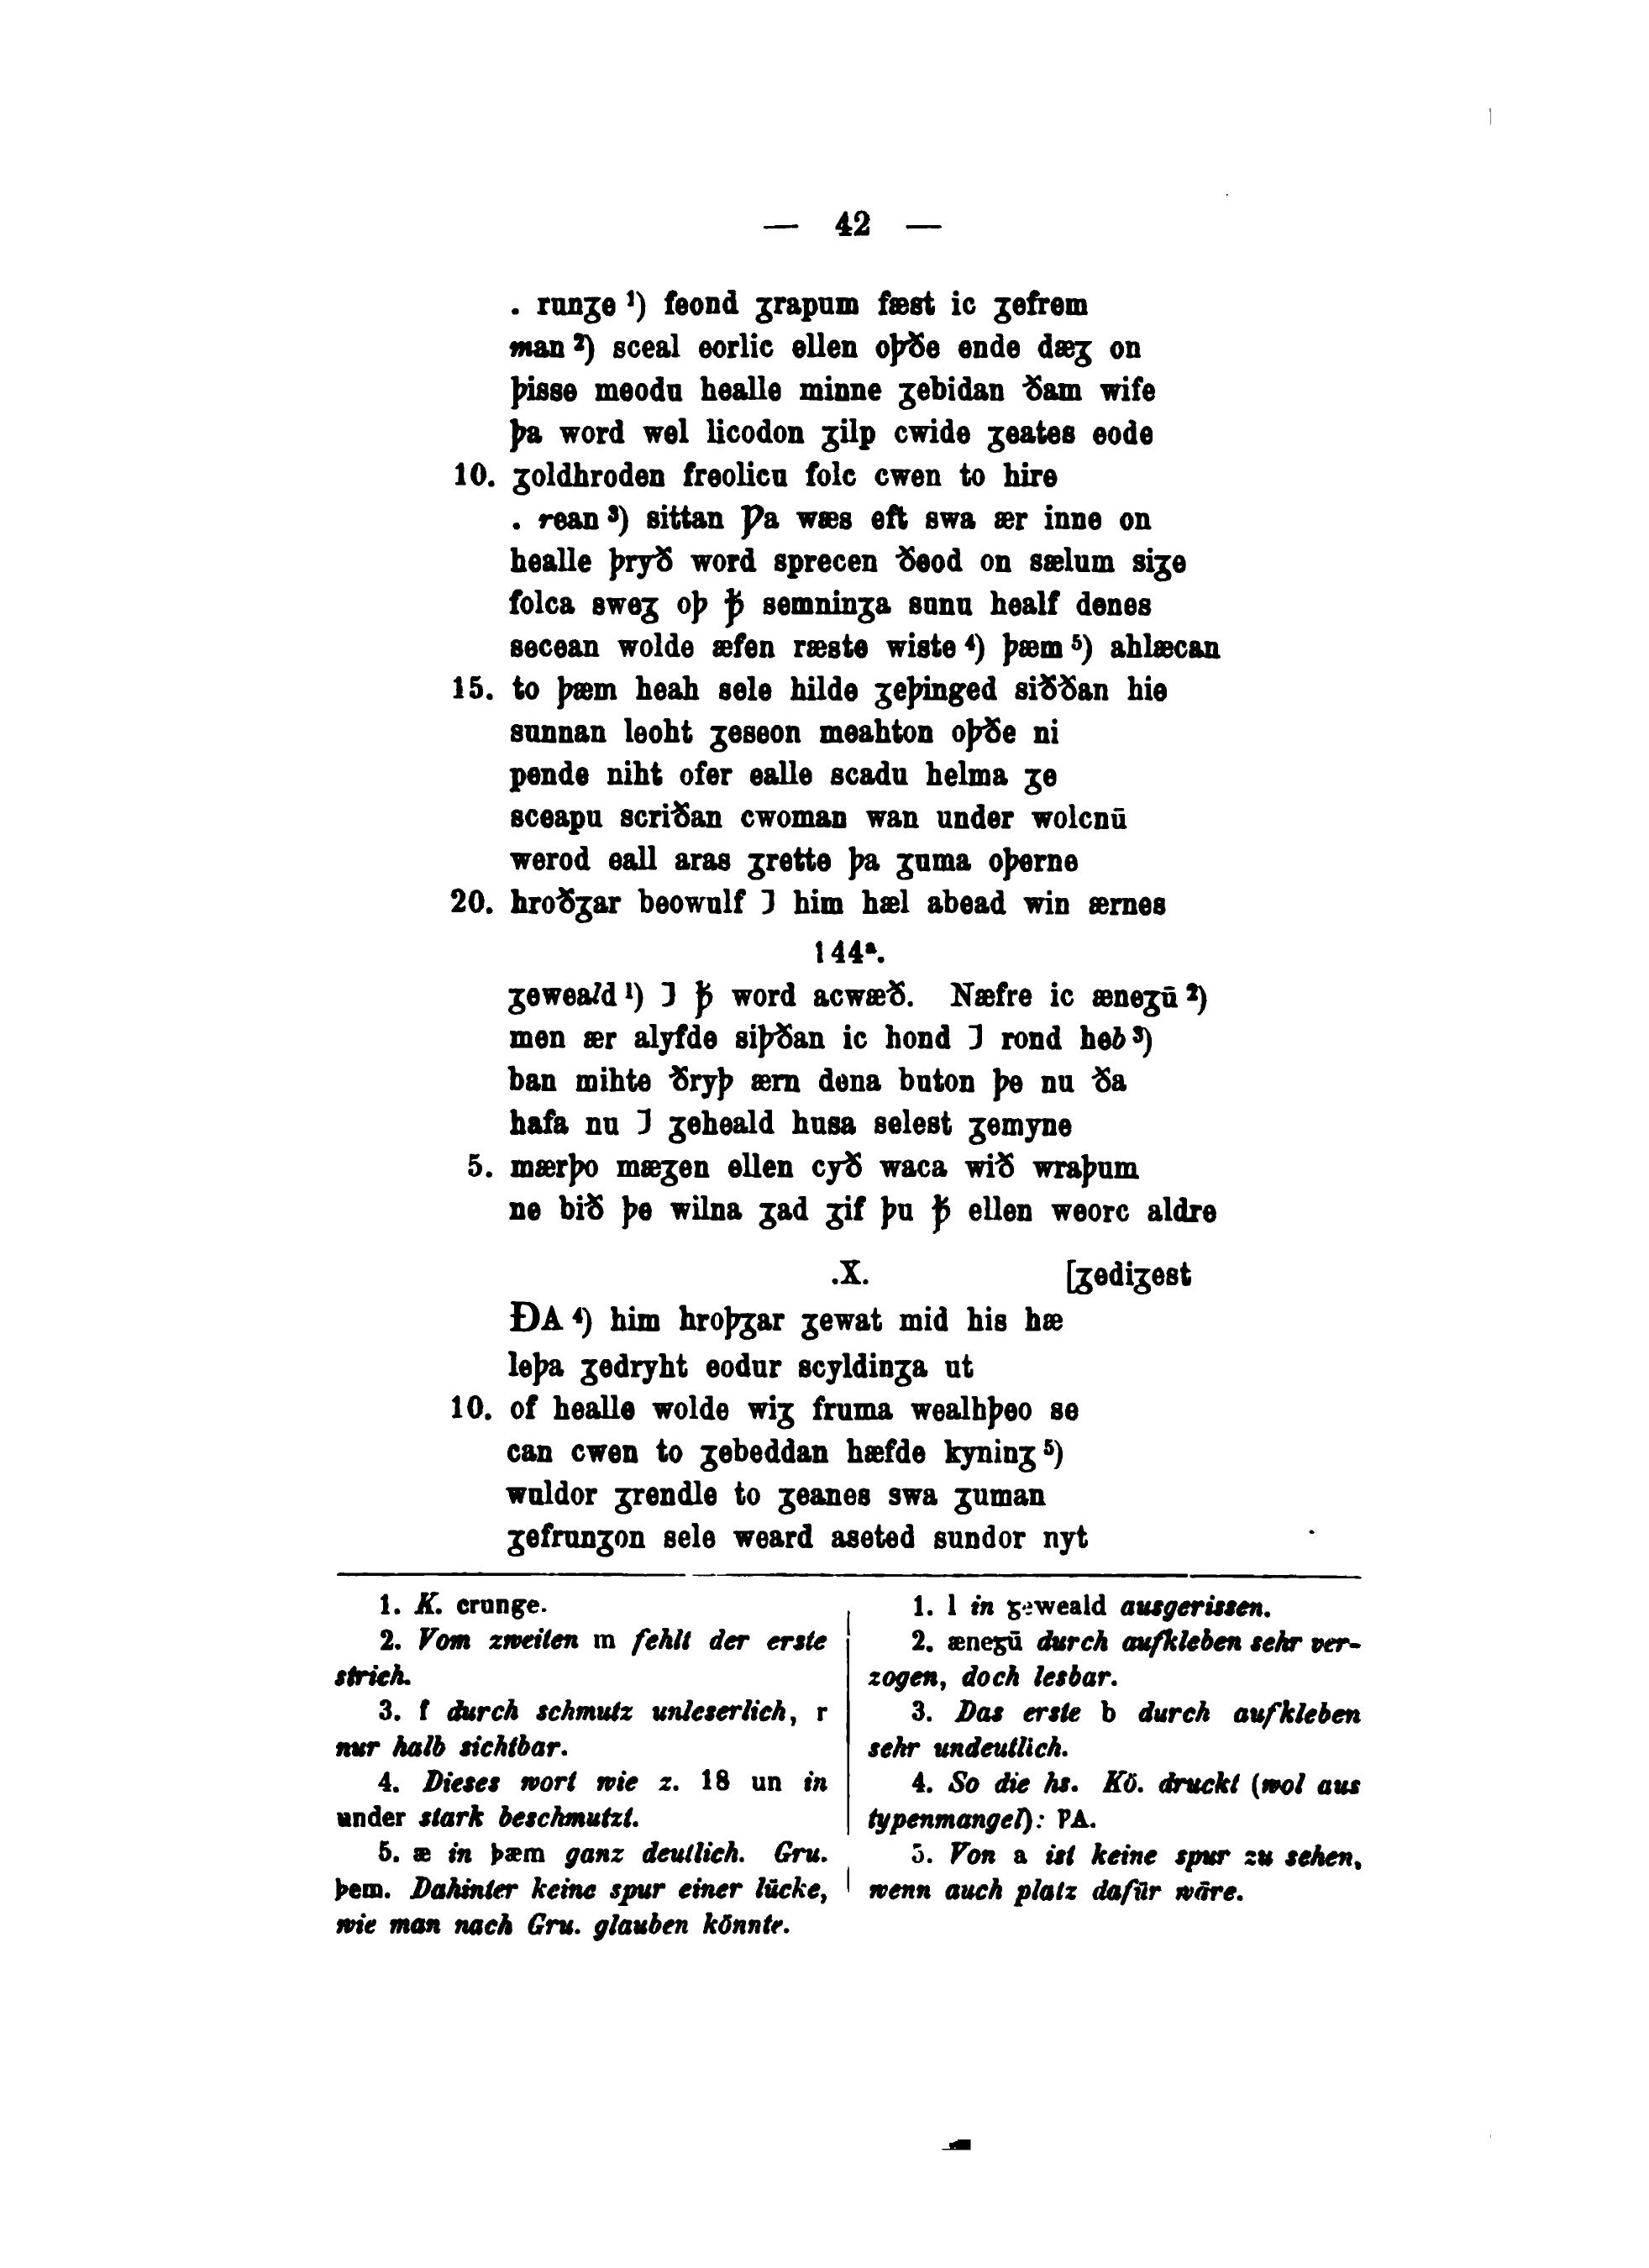 — 42 —
. runȝe ¹) feond ȝrapum fæst ic ȝefrem
man ²) sceal eorlic ellen oþðe ende dæȝ on
þisse meodu healle minne ȝebidan ðam wife
þa word wel licodon ȝilp cwide ȝeates eode
10. ȝoldhroden freolicu folc cwen to hire
. rean ³) sittan Þa wæs eft swa ær inne on
healle þryð word sprecen ðeod on sælum siȝe
folca sweȝ oþ ꝥ semninȝa sunu healf denes
secean wolde æfen ræste wiste ⁴) þæm ⁵) ahlæcan
15. to þæm heah sele hilde ȝeþinged siððan hie
sunnan leoht ȝeseon meahton oþðe ni
pende niht ofer ealle scadu helma ȝe
sceapu scriðan cwoman wan under wolcnū
werod eall aras ȝrette þa ȝuma oþerne
20. hroðȝar beowulf ⁊ him hæl abead win ærnes
144ª.
ȝeweald ¹) ⁊ ꝥ word acwæð. Næfre ic æneȝū ²)
men ær alyfde siþðan ic hond ⁊ rond heb ³)
ban mihte ðryþ ærn dena buton þe nu ða
hafa nu ⁊ ȝeheald husa selest ȝemyne
5. mærþo mæȝen ellen cyð waca wið wraþum
ne bið þe wilna ȝad ȝif þu ꝥ ellen weorc aldre
.X. [ȝediȝest
ÐA ⁴) him hroþȝar ȝewat mid his hæ
leþa ȝedryht eodur scyldinȝa ut
10. of healle wolde wiȝ fruma wealhþeo se
can cwen to ȝebeddan hæfde kyninȝ ⁵)
wuldor ȝrendle to ȝeanes swa ȝuman
ȝefrunȝon sele weard aseted sundor nyt
1. K. crunge.
2. Vom zweiten m fehlt der erste
strich.
3. f durch schmutz unleserlich, r
nur halb sichtbar.
4. Dieses wort wie z. 18 un in
under stark beschmutzt.
5. æ in þæm ganz deutlich. Gru.
þem. Dahinter keine spur einer lücke,
wie man nach Gru. glauben könnte.
1. l in ȝeweald ausgerissen.
2. æneȝū durch aufkleben sehr ver-
zogen, doch lesbar.
3. Das erste b durch aufkleben
sehr undeutlich.
4. So die hs. Kö. druckt (wol aus
typenmangel): ÞA.
5. Von a ist keine spur zu sehen,
wenn auch platz dafür wäre.